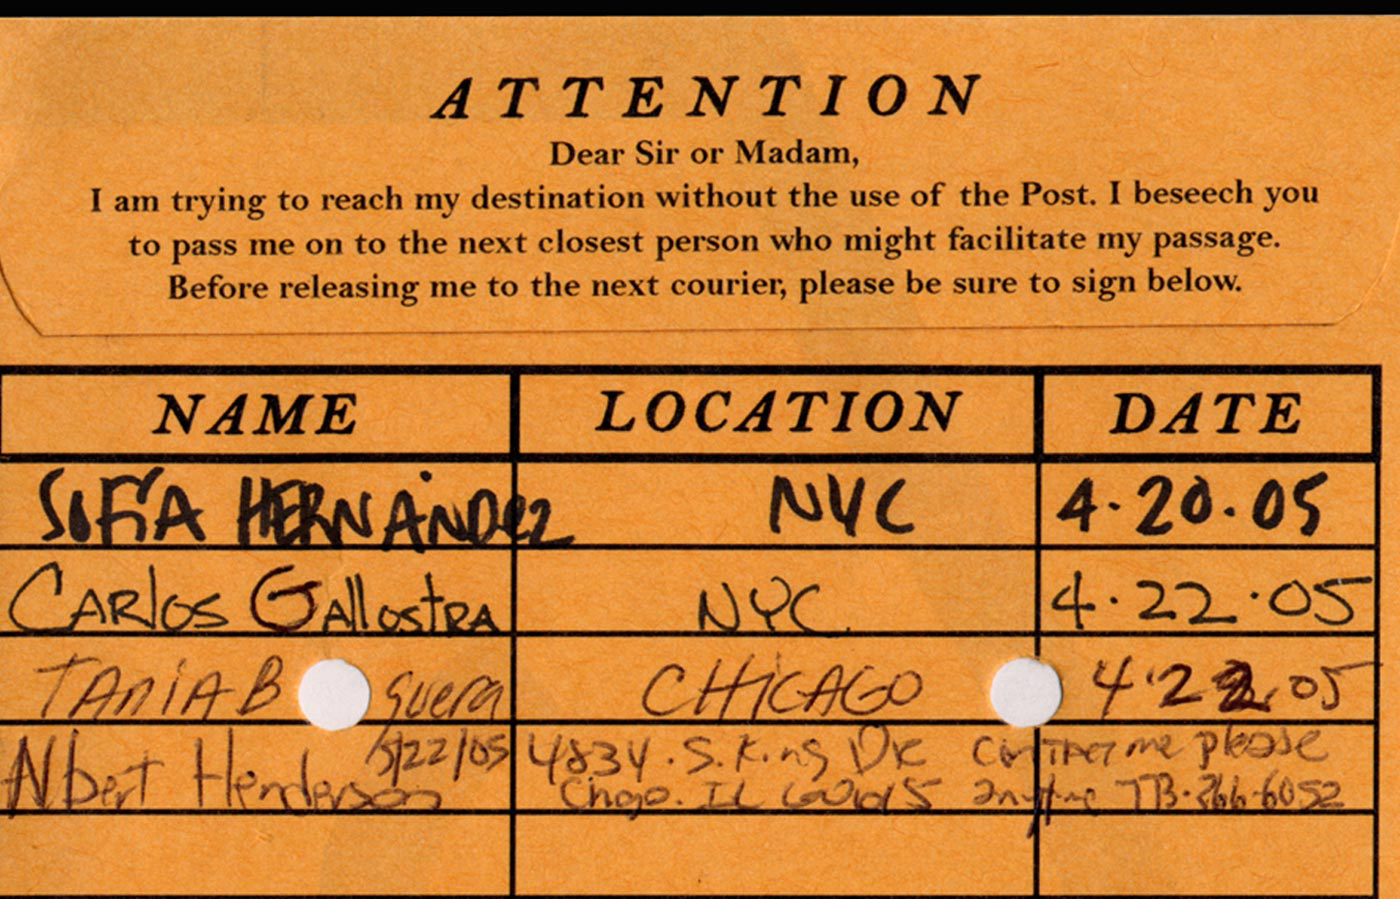 ATTENTION
Dear Sir or Madam,
I am trying to reach my destination without the use of the Post. I beseech you
to pass me on to the next closest person who might facilitate my passage.
Before releasing me to the next courier, please be sure to sign below.
NAME LOCATION DATE
SOFÍA HERNANDEZ NYC 4.20.05
CARlos GAllostRA NYC. 4.22.05
TAniA B guera CHiCAGO 4.22.05
Albert Henderson 5/22/05 4834. S. King DR Contact me please
Chgo. IL 60615